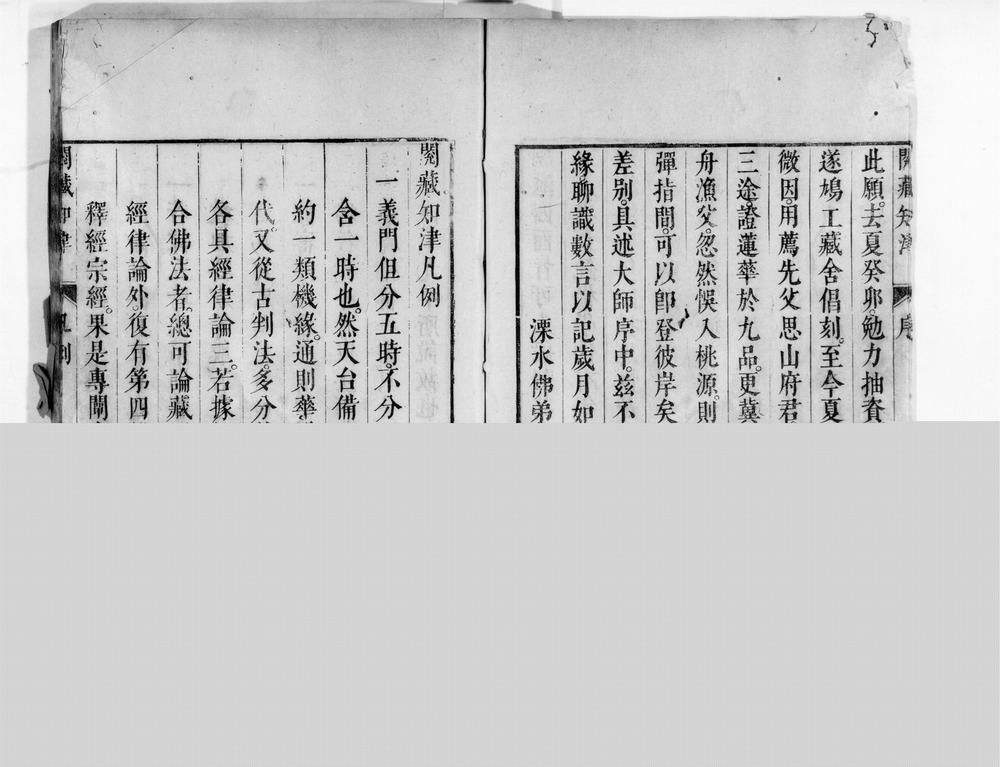 閱藏知津 序
此願。去夏癸卯。勉力抽資
遂鳩工藏舍倡刻。至今夏
微因。用薦先父思山府君
三途。證蓮華於九品。更冀
舟漁父。忽然悞入桃源。則
彈指間。可以卽登彼岸矣
差別。具述大師序中。茲不
緣聊識數言以記歲月如
溧水佛弟
閱藏知津凡例
一義門但分五時。不分
含一時也。然天台備
約一類機緣。通則華
代。又從古判法。多分
各具經律論三。若據
合佛法者。總可論藏
經律論外。復有第四
釋經宗經。果是專闡
閱藏知津 凡例